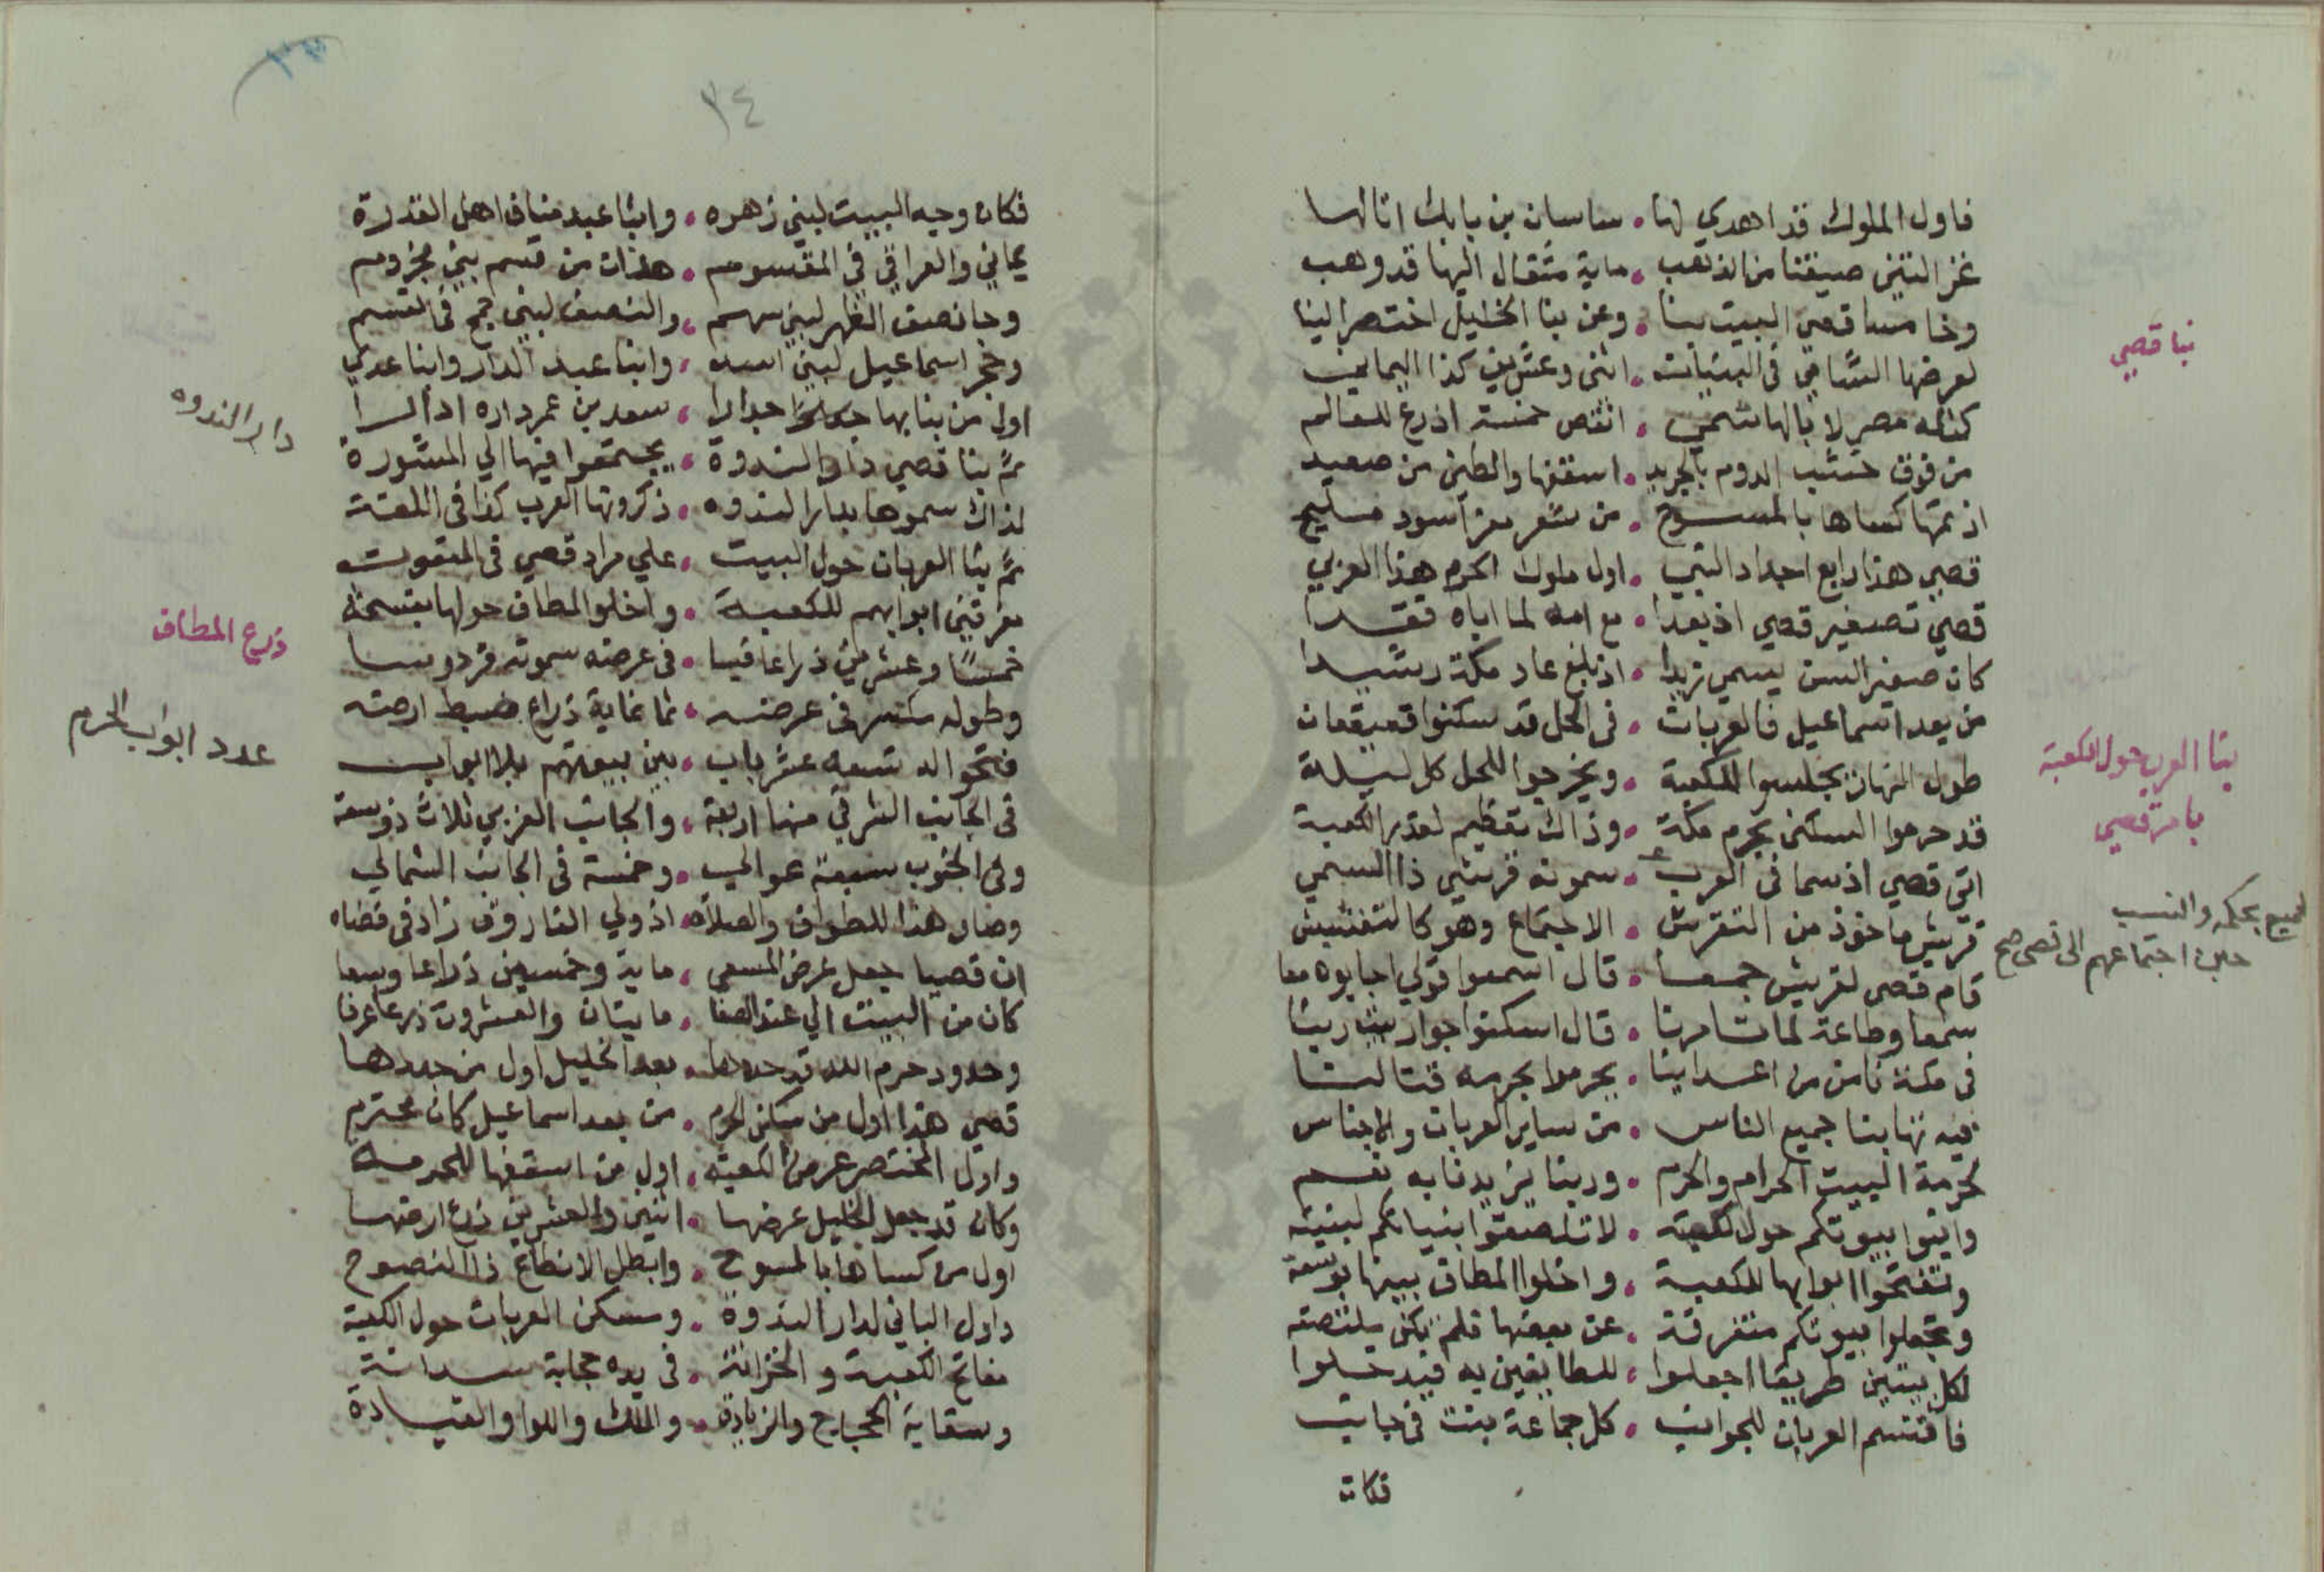 فاول الملوك قد اهدي لها • ساسان بن بابك اتا لها
غزالتين صيغتا من الذهب • ماية مثقال اليها قد وهب
وخامسا قصي البيت بنا • وعن بنا الخليل اختصر لينا
لعرضها الشامي في البنيات • اثنى وعشرين كذا اليماني
كذا له مصر لا بالهاشمي • انقص خمسة اذرع للعالم
من فوق خشب الدوم بالجريد • اسقفها والطين من صعيد
اذ تمها كساها بالمسوح • من شعر معز اسود مسليح
قصي هذا رابع اجداد النبي • اول ملوك الحرم هذا العربي
قصي تصغير قصي اذ بعدا • مع امه لما اباه فقدا
كان صغير السن يسمي زيدا • اذ بلغ عاد مكة رشيدا
من بعد اسماعيل فالعربات • في الحل قد سكنوا قعيقعان
طول النهار يجلسوا للكعبة • ويخرجوا للحل كل ليلة
قد حرموا السكنى بحرم مكة • وذاك تعظيم لقدر الكعبة
اتي قصي اذ سما في العرب • سموته قريشي ذا السمي
قريش ماخوذ من التقرش • الاجتماع وهو كالتفتيش
قام قصي لقريش جمعا • قال اسمعوا قولي اجابوه معا
سمعا وطاعة لما تامرنا • قال اسكنوا جوار بيت ربنا
في مكة نامن من اعداينا • يحرموا بحرمه قتالنا
فيه تهابنا جميع الناس • من ساير العربات والاجناس
لحرمة البيت الحرام والحرم • وربنا يزيدنا به نعم
وابنوا بيوتكم حول الكعبة • لا تلصقوا بنيانكم لبنيته
وتفتحوا ابوابها للكعبة • واخلوا المطاف بينها بوسعة
وتجعلوا بيوتكم متفرقة • عن بعضها فلم يكن ملتصقه
لكل بيتين طريقا اجعلوا • للطايفين به فيدخلوا
فاقتسم العربان للجوانب • كل جماعة بنت في جانب
فكان
بنا قصي
بنا العرب حول الكعبة
بامر قصي
بحكمه والنسب
حين اجتماعهم الى قصي صح
٢٤
فكان وجه البيت لبني زهره • وابنا عبد مناف اهل القدرة
يماني والعراقي في المقسوم • هذان من قسم بني مخزوم
وجا نصف الظهر لبني سهم • والنصف لبني جمح في القسم
وحجر اسماعيل لبني اسد • وابنا عبد الدار وابنا عدي
اول من بنا بها جدارا • سعد بن عمر داره ادارا
ثم بنا قصي دار الندوة • يجتمعوا فيها الي المشورة
لذاك سموها بدار الندوه • ذكروتها العرب كذا في اللغة
ثم بنا العربان حول البيت • علي مراد قصي في المنعوت
مفرقين ابوابهم للكعبة • واخلوا المطاف حولها بفسحة
خمسًا وعشرين ذراعا قيسا • في عرضه سموته فردوسا
وطوله في عرضه • ثماغاية ذراع ضبط ارضه
فتحوا له تسعه عشر باب • بين بيوتهم بلا ابواب
في الجانب الشرقي منها اربعة • والجانب الغربي ثلاث ذو سعة
وفي الجنوب سبعة عوالي • وخمسة في الجانب الشمالي
وصار هذا للطواف والصلاه • اذ ولي الفاروق زاد في فضاه
ان قصيا جعل عرض المسعي • ماية وخمسين ذراعا وسعا
كان من البيت الي عند الصفا • مايتان والعشرون ذرعا عرفا
وحدود حرم الله قد حددها • بعد الخليل اول من جددها
قصي هذا اول من سكن الحرم • من بعد اسماعيل كان محترم
واول المختصر عرض الكعبة • اول من اسقفها للحرمة
وكان قد جعل الخليل عرضها • اثنين والعشرين ذرع ارضها
اول من كساها بالمسوح • وابطل الانطاع ذا النصوح
واول الباني لدار الندوة • وسكن العربات حول الكعبة
مفاتح الكعبة والخزانة • في يده حجابة سدانة
وسقاية الحجاج والزيادة • والملك واللوا والقيادة
دار الندوه
ذرع المطاف
عدد ابواب الحرم